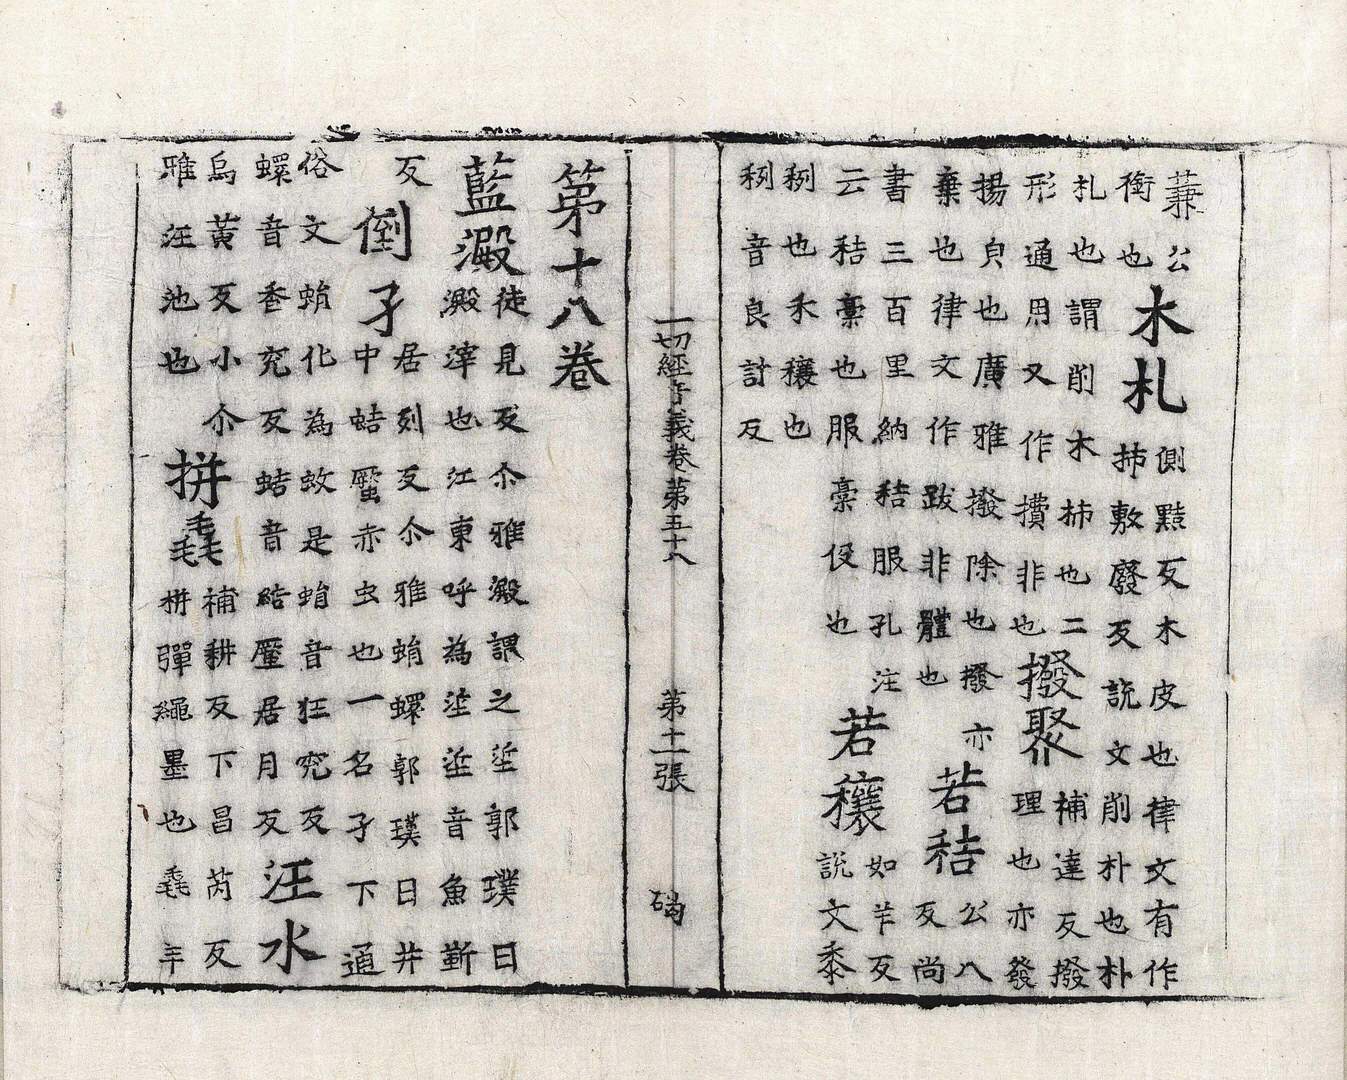 蒹公
衡也
木札
側黠反木皮也律文有作
柿敷廢反説文削朴也朴
札也謂削木柿也二
形通用又作擯非也
撥聚
補達反撥
理也亦發
揚貟也廣雅撥除也撥亦
棄也律文作跋非體也
若秸
公八
反尚
書三百里納秸服孔注
云秸稾也服稾役也
若穰
如羊反
説文黍
𥝢也禾穰也
𥝢音良計反
一切經音義卷第五十八
第十一張
碣
第十八卷
藍澱
徒見反尒雅澱謂之垽郭璞曰
澱滓也江東呼為垽垽音魚靳
反
倒孑
居列反尒雅蜎蠉郭璞曰井
中蛣蟩赤虫也一名孑下通
俗文蜎化為蚊是蜎音狂兖反
蠉音香兖反蛣音結蟩居月反
汪水
烏黃反小尒
雅汪池也
拼毳
補耕反下昌芮反
拼彈繩墨也毳羊